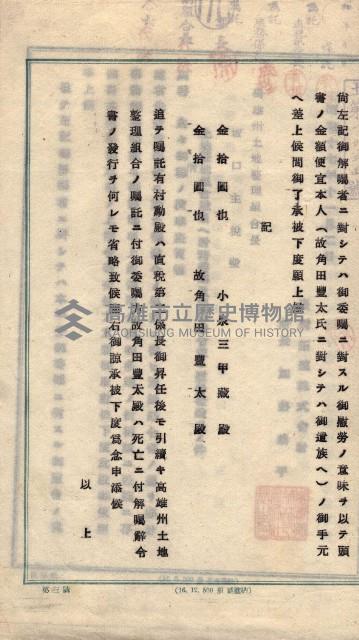 尙左記御解囑者ニ對シテハ御委囑ニ對スル御慰勞ノ意味ヲ以テ頭
書ノ金額便宜本人(故角田豐太氏ニ對シテハ御遺族へ)ノ御手元
ヘ差上候間御了承被下度願上候
記
金拾圓也 小 三甲藏殿
金拾圓也 故角田豐太殿
追テ囑託有村勳殿ハ直稅第一係長御昇任後モ引續キ高雄州土地
整理組合ノ囑託ニ付御委囑 故角田豐太殿ハ死亡ニ付解囑辭令
書ノ發行ヲ何レモ省略致候 右御諒承被下度爲念申添候
以上
高雄市立歷史博物館
KAOHSIUNG MUSEUM OF HISTORY
第三號
(16. 12. 800